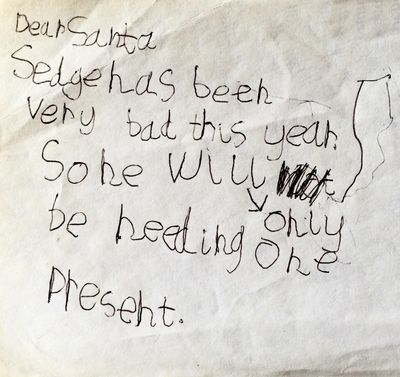 Dear Santa
Sedge has been
very bad this year.
So he will
only
be needing one
present.